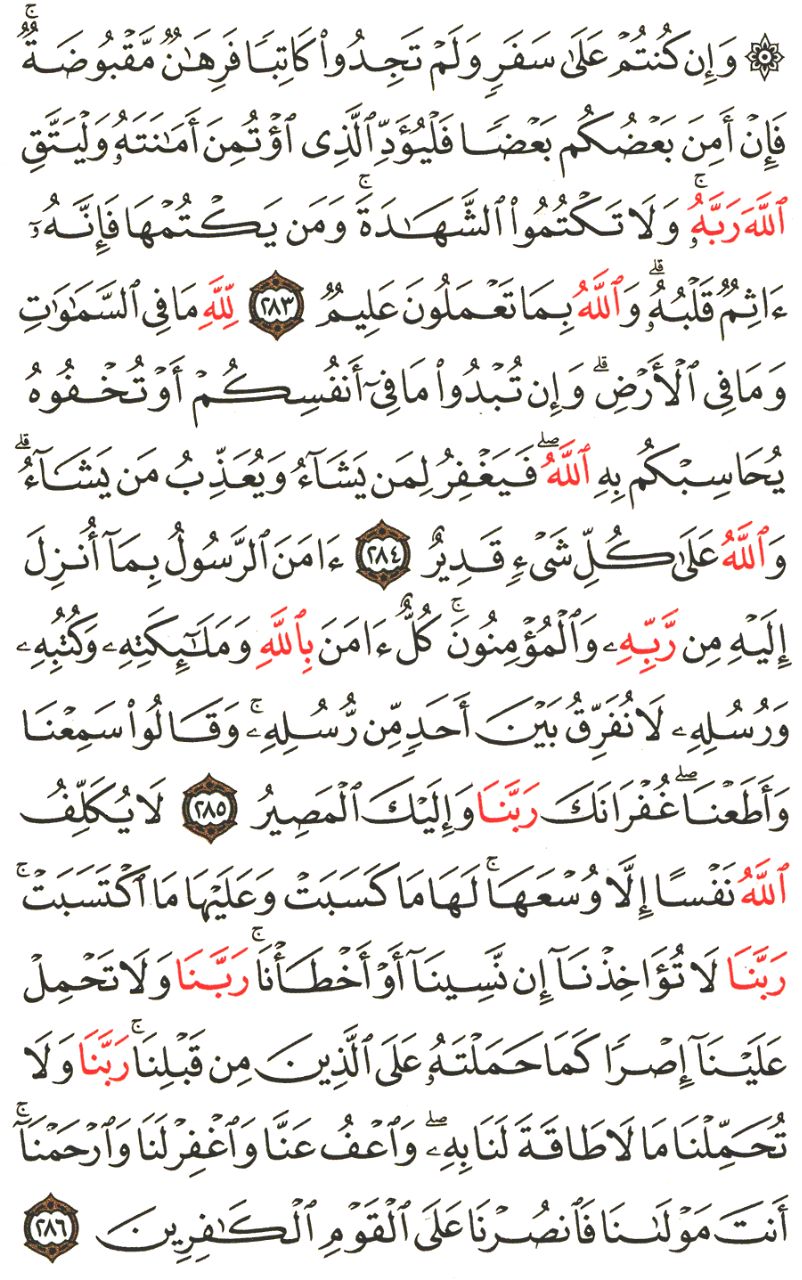 ۞ وَإِن كُنتُمْ عَلَىٰ سَفَرٍ وَلَمْ تَجِدُوا۟ كَاتِبًا فَرِهَـٰنٌ مَّقْبُوضَةٌ ۖ
فَإِنْ أَمِنَ بَعْضُكُم بَعْضًا فَلْيُؤَدِّ ٱلَّذِى ٱؤْتُمِنَ أَمَـٰنَتَهُۥ وَلْيَتَّقِ
ٱللَّهَ رَبَّهُۥ ۚ وَلَا تَكْتُمُوا۟ ٱلشَّهَـٰدَةَ ۚ وَمَن يَكْتُمْهَا فَإِنَّهُۥٓ
ءَاثِمٌ قَلْبُهُۥ ۗ وَٱللَّهُ بِمَا تَعْمَلُونَ عَلِيمٌ ٢٨٣ لِّلَّهِ مَا فِى ٱلسَّمَـٰوَٰتِ
وَمَا فِى ٱلْأَرْضِ ۗ وَإِن تُبْدُوا۟ مَا فِىٓ أَنفُسِكُمْ أَوْ تُخْفُوهُ
يُحَاسِبْكُم بِهِ ٱللَّهُ ۖ فَيَغْفِرُ لِمَن يَشَآءُ وَيُعَذِّبُ مَن يَشَآءُ ۗ
وَٱللَّهُ عَلَىٰ كُلِّ شَىْءٍ قَدِيرٌ ٢٨٤ ءَامَنَ ٱلرَّسُولُ بِمَآ أُنزِلَ
إِلَيْهِ مِن رَّبِّهِۦ وَٱلْمُؤْمِنُونَ ۚ كُلٌّ ءَامَنَ بِٱللَّهِ وَمَلَـٰٓئِكَتِهِۦ وَكُتُبِهِۦ
وَرُسُلِهِۦ لَا نُفَرِّقُ بَيْنَ أَحَدٍ مِّن رُّسُلِهِۦ ۚ وَقَالُوا۟ سَمِعْنَا
وَأَطَعْنَا ۖ غُفْرَانَكَ رَبَّنَا وَإِلَيْكَ ٱلْمَصِيرُ ٢٨٥ لَا يُكَلِّفُ
ٱللَّهُ نَفْسًا إِلَّا وُسْعَهَا ۚ لَهَا مَا كَسَبَتْ وَعَلَيْهَا مَا ٱكْتَسَبَتْ ۗ
رَبَّنَا لَا تُؤَاخِذْنَآ إِن نَّسِينَآ أَوْ أَخْطَأْنَا ۚ رَبَّنَا وَلَا تَحْمِلْ
عَلَيْنَآ إِصْرًا كَمَا حَمَلْتَهُۥ عَلَى ٱلَّذِينَ مِن قَبْلِنَا ۚ رَبَّنَا وَلَا
تُحَمِّلْنَا مَا لَا طَاقَةَ لَنَا بِهِۦ ۖ وَٱعْفُ عَنَّا وَٱغْفِرْ لَنَا وَٱرْحَمْنَآ ۚ
أَنتَ مَوْلَىٰنَا فَٱنصُرْنَا عَلَى ٱلْقَوْمِ ٱلْكَـٰفِرِينَ ٢٨٦